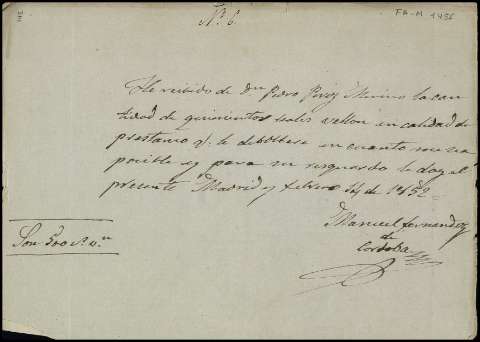 Nº 6.
FA-M 1456
He recibido de Dn Pedro Perez Merino la can
tidad de quinientos reales vellon en calidad de
prestamo q. le debolbere en cuanto me sea
posible y para su resguardo le doy el
presente Madrid y febrero 14 de 1852
Manuel Fernandez
de
Cordoba
Son 500 rs. vn